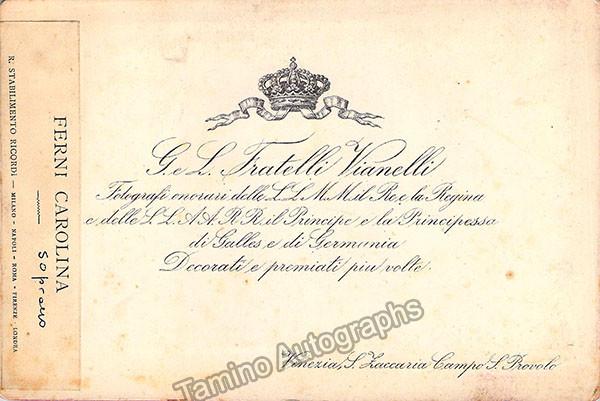 R. STABILIMENTO RICORDI — MILANO - NAPOLI - ROMA - FIRENZE - LONDRA
FERNI CAROLINA
soprano
G. e L. Fratelli Vianelli
Fotografi onorari delle L.L. M.M. il Re e la Regina
e delle L.L. A.A. R.R. il Principe e la Principessa
di Galles e di Germania
Decorati e premiati piu volte.
Venezia, S. Zaccaria Campo S. Provolo
Tamino Autographs